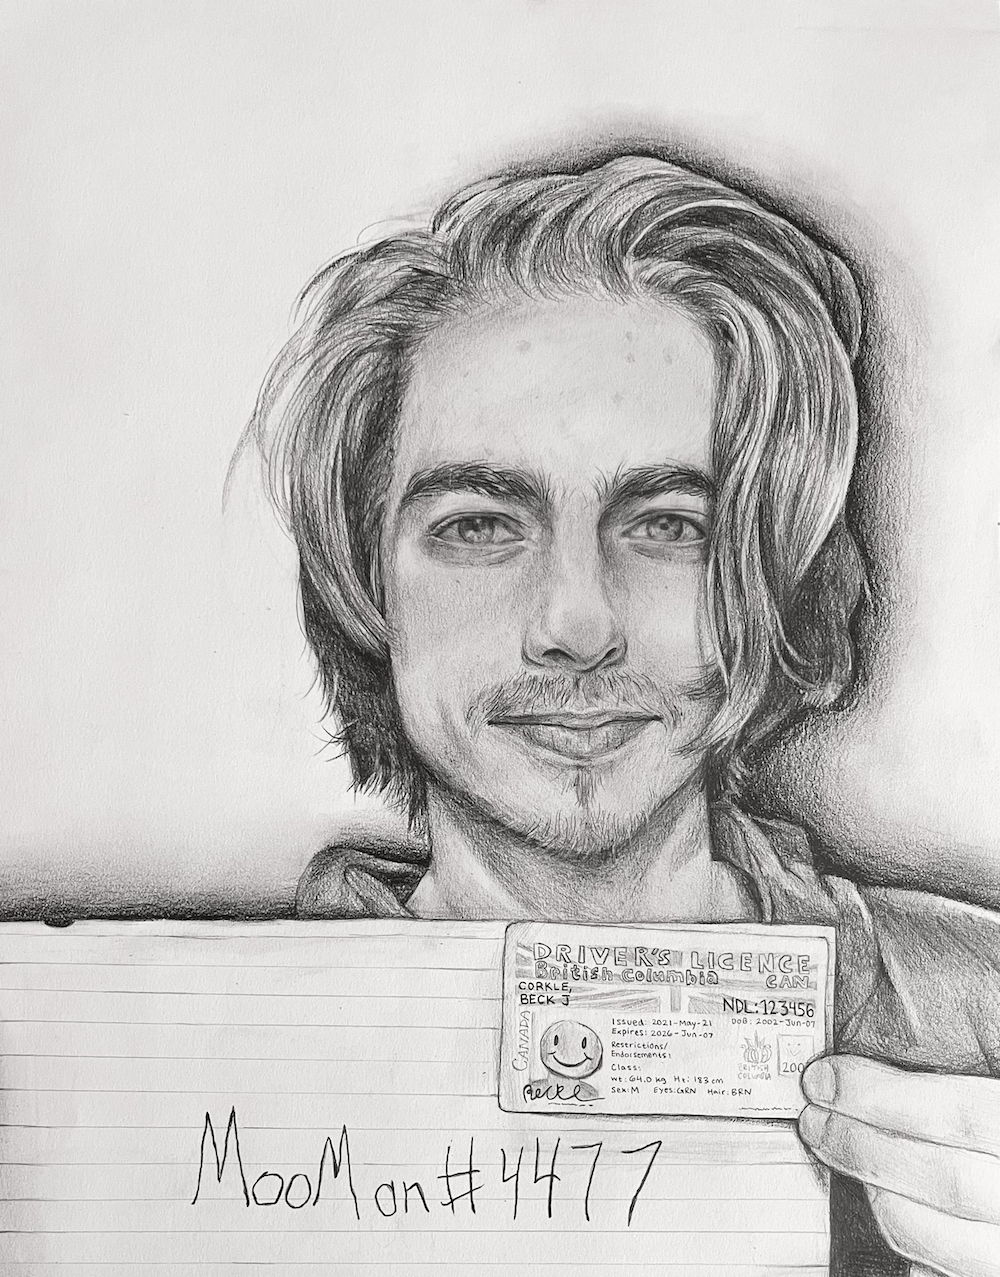 DRIVER'S LICENCE
British Columbia CAN
CORKLE,
BECK J
NDL:123456
Issued: 2021-May-21 DoB: 2002-Jun-07
Expires: 2026-Jun-07
Restrictions/
Endorsements:
Class:
Wt: 64.0 kg Ht: 183 cm
Sex:M Eyes:GRN Hair:BRN
CANADA
BRITISH
COLUMBIA
200
Beck
MooMan#4477